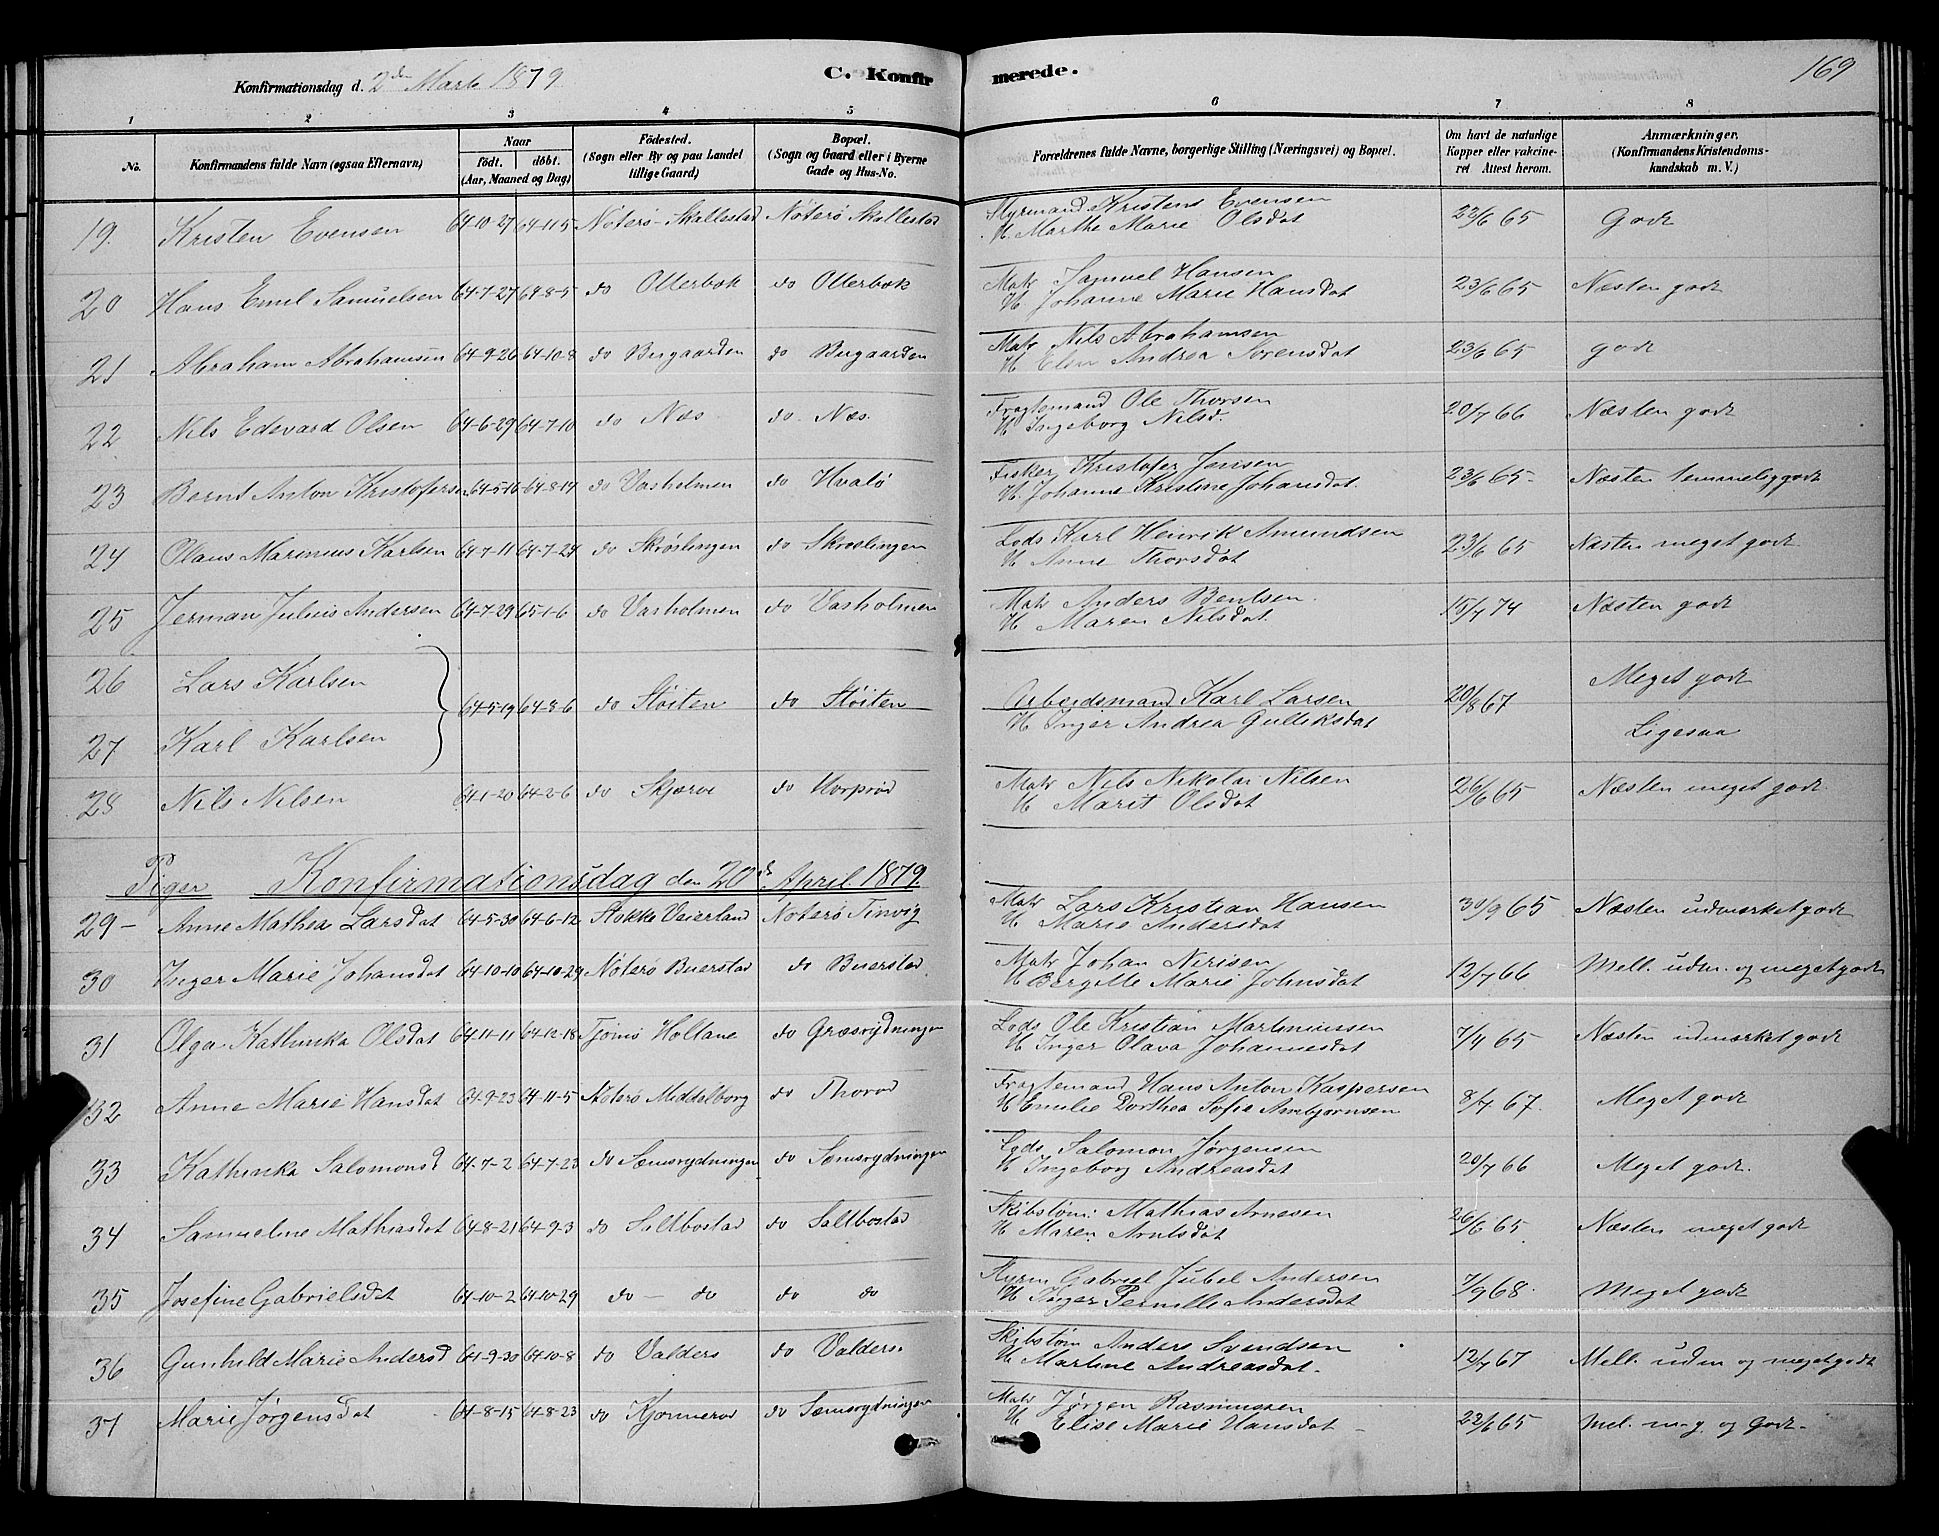 Konfirmationsdag d. 2den Marts 1879
C. Konfirmerede.
169
1 2 3 4 5 6 7 8
No. | Konfirmandens fulde Navn (ogsaa Efternavn) | Naar født. døbt. (Aar, Maaned og Dag) | Fødested. (Sogn eller By og paa Landet tillige Gaard) | Bopæl. (Sogn og Gaard eller i Byerne Gade og Hus-No. | Forældrenes fulde Navne, borgerlige Stilling (Næringsvei) og Bopæl. | Om havt de naturlige Kopper eller vakcineret Attest herom. | Anmærkninger. (Konfirmandens Kristendomskundskab m. V.)
19. Kristen Evensen 64-10-27 64-11-5 Nøterø Skallestad Nøterø Skallestad Styrmand Kristens Evensen 22/6 65 Godt
H. Marthe Marie Olsdat
20 Hans Emil Samuelsen 64-7-27 64-8-5 do Ollerbok do Ollerbok Matr Samuel Hansen 23/6 65 Næsten godt
H Johanne Marie Hansdat
21 Abraham Abrahamsen 64-9-26 64-10-8 do Bugaarden do Bugaarden Matr Nils Abrahamsen 23/6 65 godt
H Elen Andrea Sørensdat
22 Nils Edevard Olsen 64-6-29 64-7-10 do Næs do Næs. Fragtemand Ole Thorsen 20/7 66 Næsten godt
H Ingeborg Nilsd.
23 Bernt Anton Kristofersen 64-5-16 64-8-14 do Vasholmen do Hvalø Fisker Kristofer Jensen 23/6 65 Næsten temmelig godt
H. Johanne Kristine Johansdat.
24 Olaus Marinius Karlsen 64-7-11 64-7-24 do Skrøslingen do Skrøslingen Lods Karl Henrik Amundsen 23/6 65 Næsten meget godt
H Anne Thorsdat
25 Jerman Julius Andersen 64-7-29 65-1-6 do Vasholmen do Vasholmen Matr Anders Bentsen 15/7 74 Næsten godt
H Maren Nilsdat.
26 Lars Karlsen Meget godt
64-5-19 64-8-6 do Støiten do Støiten Arbeidsmand Karl Larsen 20/8 67
H Inger Andrea Gulliksdat
27 Karl Karlsen Ligesaa
28 Nils Nilsen 64-1-20 64-2-6 do Skjærve do Horperød Matr Nils Nikolai Nilsen 26/6 65 Næsten meget godt.
H Marit Olsdat
Piger Konfirmationsdag den 20de April 1879.
29- Anne Mathea Larsdat 64-5-30 64-6-12 Stokke Vaierland Nøterø Tinvig Matr Lars Kristian Hansen 30/9 65 Næsten udmærket godt
H Marie Andersdat
30 Inger Marie Johansdat 64-10-10 64-10-29 Nøterø Buerstad do Buerstad Matr Johan Nerisen 12/7 66 Mell. udm. og meget godt
H Bergitte Marie Johnsdat
31 Olga Kathinka Olsdat 64-11-11 64-12-18 Tjømø Holtane do Græsrydningen Lods Ole Kristian Martiniussen 7/4 65 Næsten udmærket godt
H Inger Olava Johannesdat
32 Anne Marie Hansdat 64-9-23 64-11-5 Nøterø Middelborg do Thorød Fragtemand Hans Anton Kaspersen 8/7 67. Meget godt
H Emilie Dorthea Sofie Arnbjørnsen
33 Kathinka Salomonsd 64-7-2 64-7-23 do Semsrydningen do Semsrydningen Lods Salomon Jørgensen 20/7 66 Meget godt.
H Ingeborg Andreasdat
34 Samueline Mathiasdat 64-8-21 64-9-3 do Saltbostad do Saltbostad Skibstøm: Mathias Arnesen 26/6 65 Næsten meget godt
H Maren Arntsdat
35 Josefine Gabrielsdat 64-10-2 64-10-29 do - do do do Styrm Gabriel Jubel Andersen 7/9 68. Meget godt
H Inger Pernille Andersdat
36 Gunhild Marie Andersd 64-9-30 64-10-8 do Valders do Valders. Skibstøm Anders Svendsen 12/7 67 Mell. udm og meget godt
H Martine Andreasdat.
37 Marie Jørgensdat 64-8-15 64-8-23 do Kjønnerød do Semsrydningen Matr Jørgen Rasmussen 22/6 65 Mel. m. g. og Godt.
H Elise Marie Hansdat